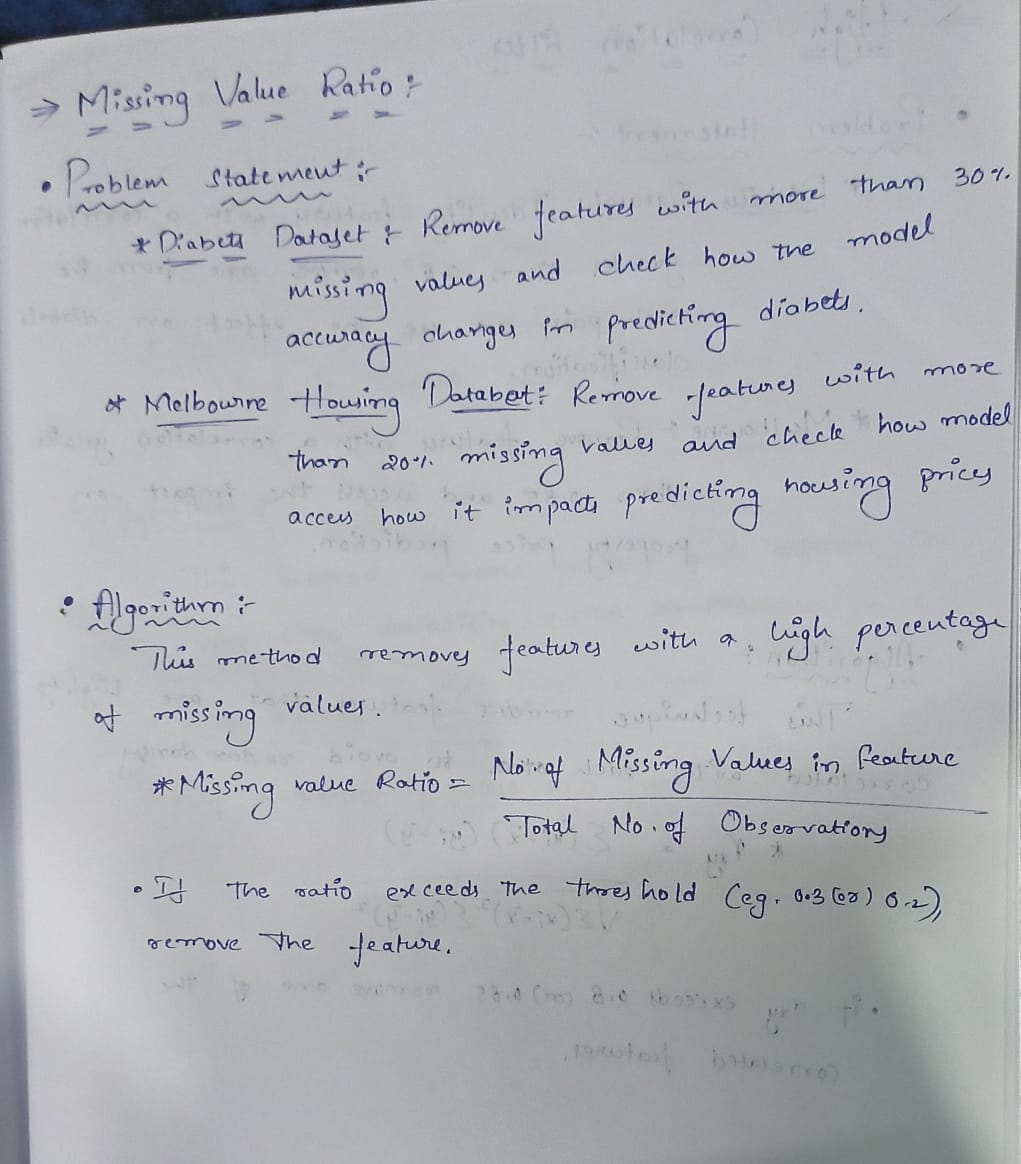 ⇒ Missing Value Ratio :-
• Problem Statement :-
* Diabets Dataset :- Remove features with more than 30%
missing values and check how the model
accuracy changes in predicting diabets.
* Melbourne Housing Databet :- Remove features with more
than 20% missing values and check how model
access how it impacts predicting housing prices
• Algorithm :-
This method removes features with a high percentage
of missing values.
* Missing value Ratio = No. of Missing Values in feature
Total No. of Observations
• If the ratio exceeds the threshold (eg. 0.3 (or) 0.2),
remove the feature.